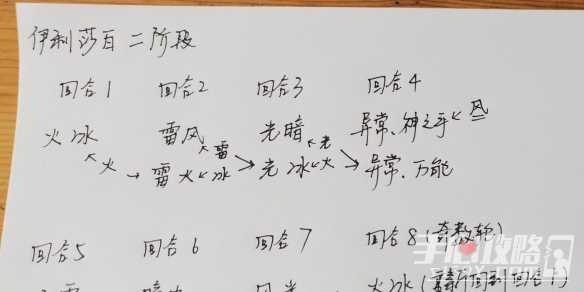 伊利莎白 二阶段
回合1 回合2 回合3 回合4
火冰 雷风 雷 光暗 光 异常、神之手 风
火 雷 火 冰 光 冰 火 异常、万能
回合5 回合6 回合7 回合8 (奇数轮)
火冰 (重新回到回合1)
手心攻略